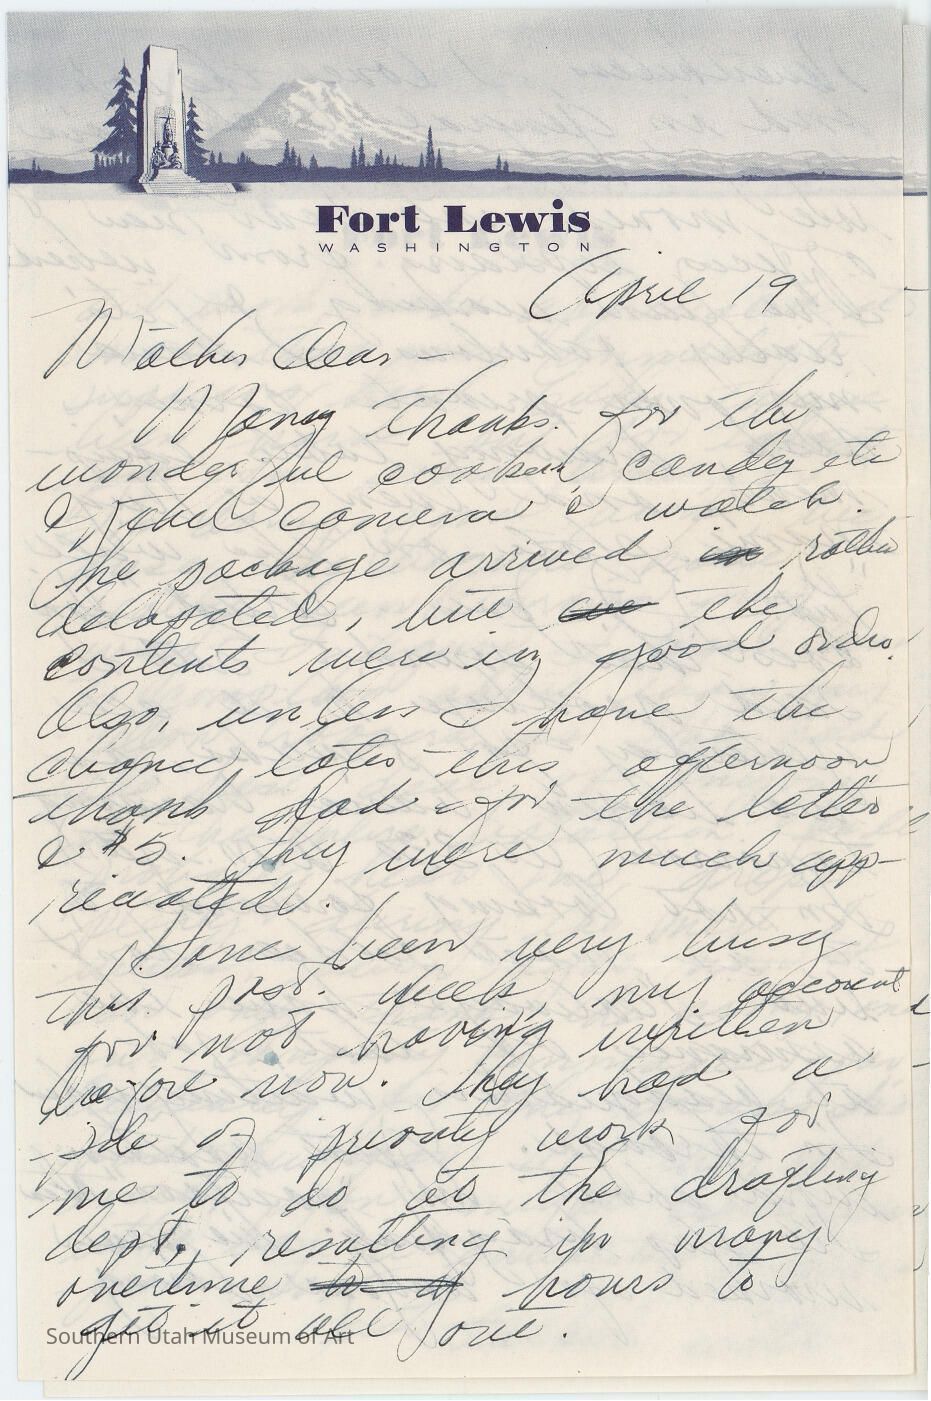 Fort Lewis
WASHINGTON
April 19
Mother Dear –
Many thanks for the
wonderful cookies, candy etc
& the camera & watch.
The package arrived in rather
delapated, but the
contents were in good order.
Also, unless I have the
chance later this afternoon
thank Dad for the letter
& $5. They were much app-
reciated.
Have been very busy
this past week, my account
for not having written
before now. They had a
of priority work for
me to do at the drafting
dept., resulting in many
overtime hours to
get it all done.
Southern Utah Museum of Art